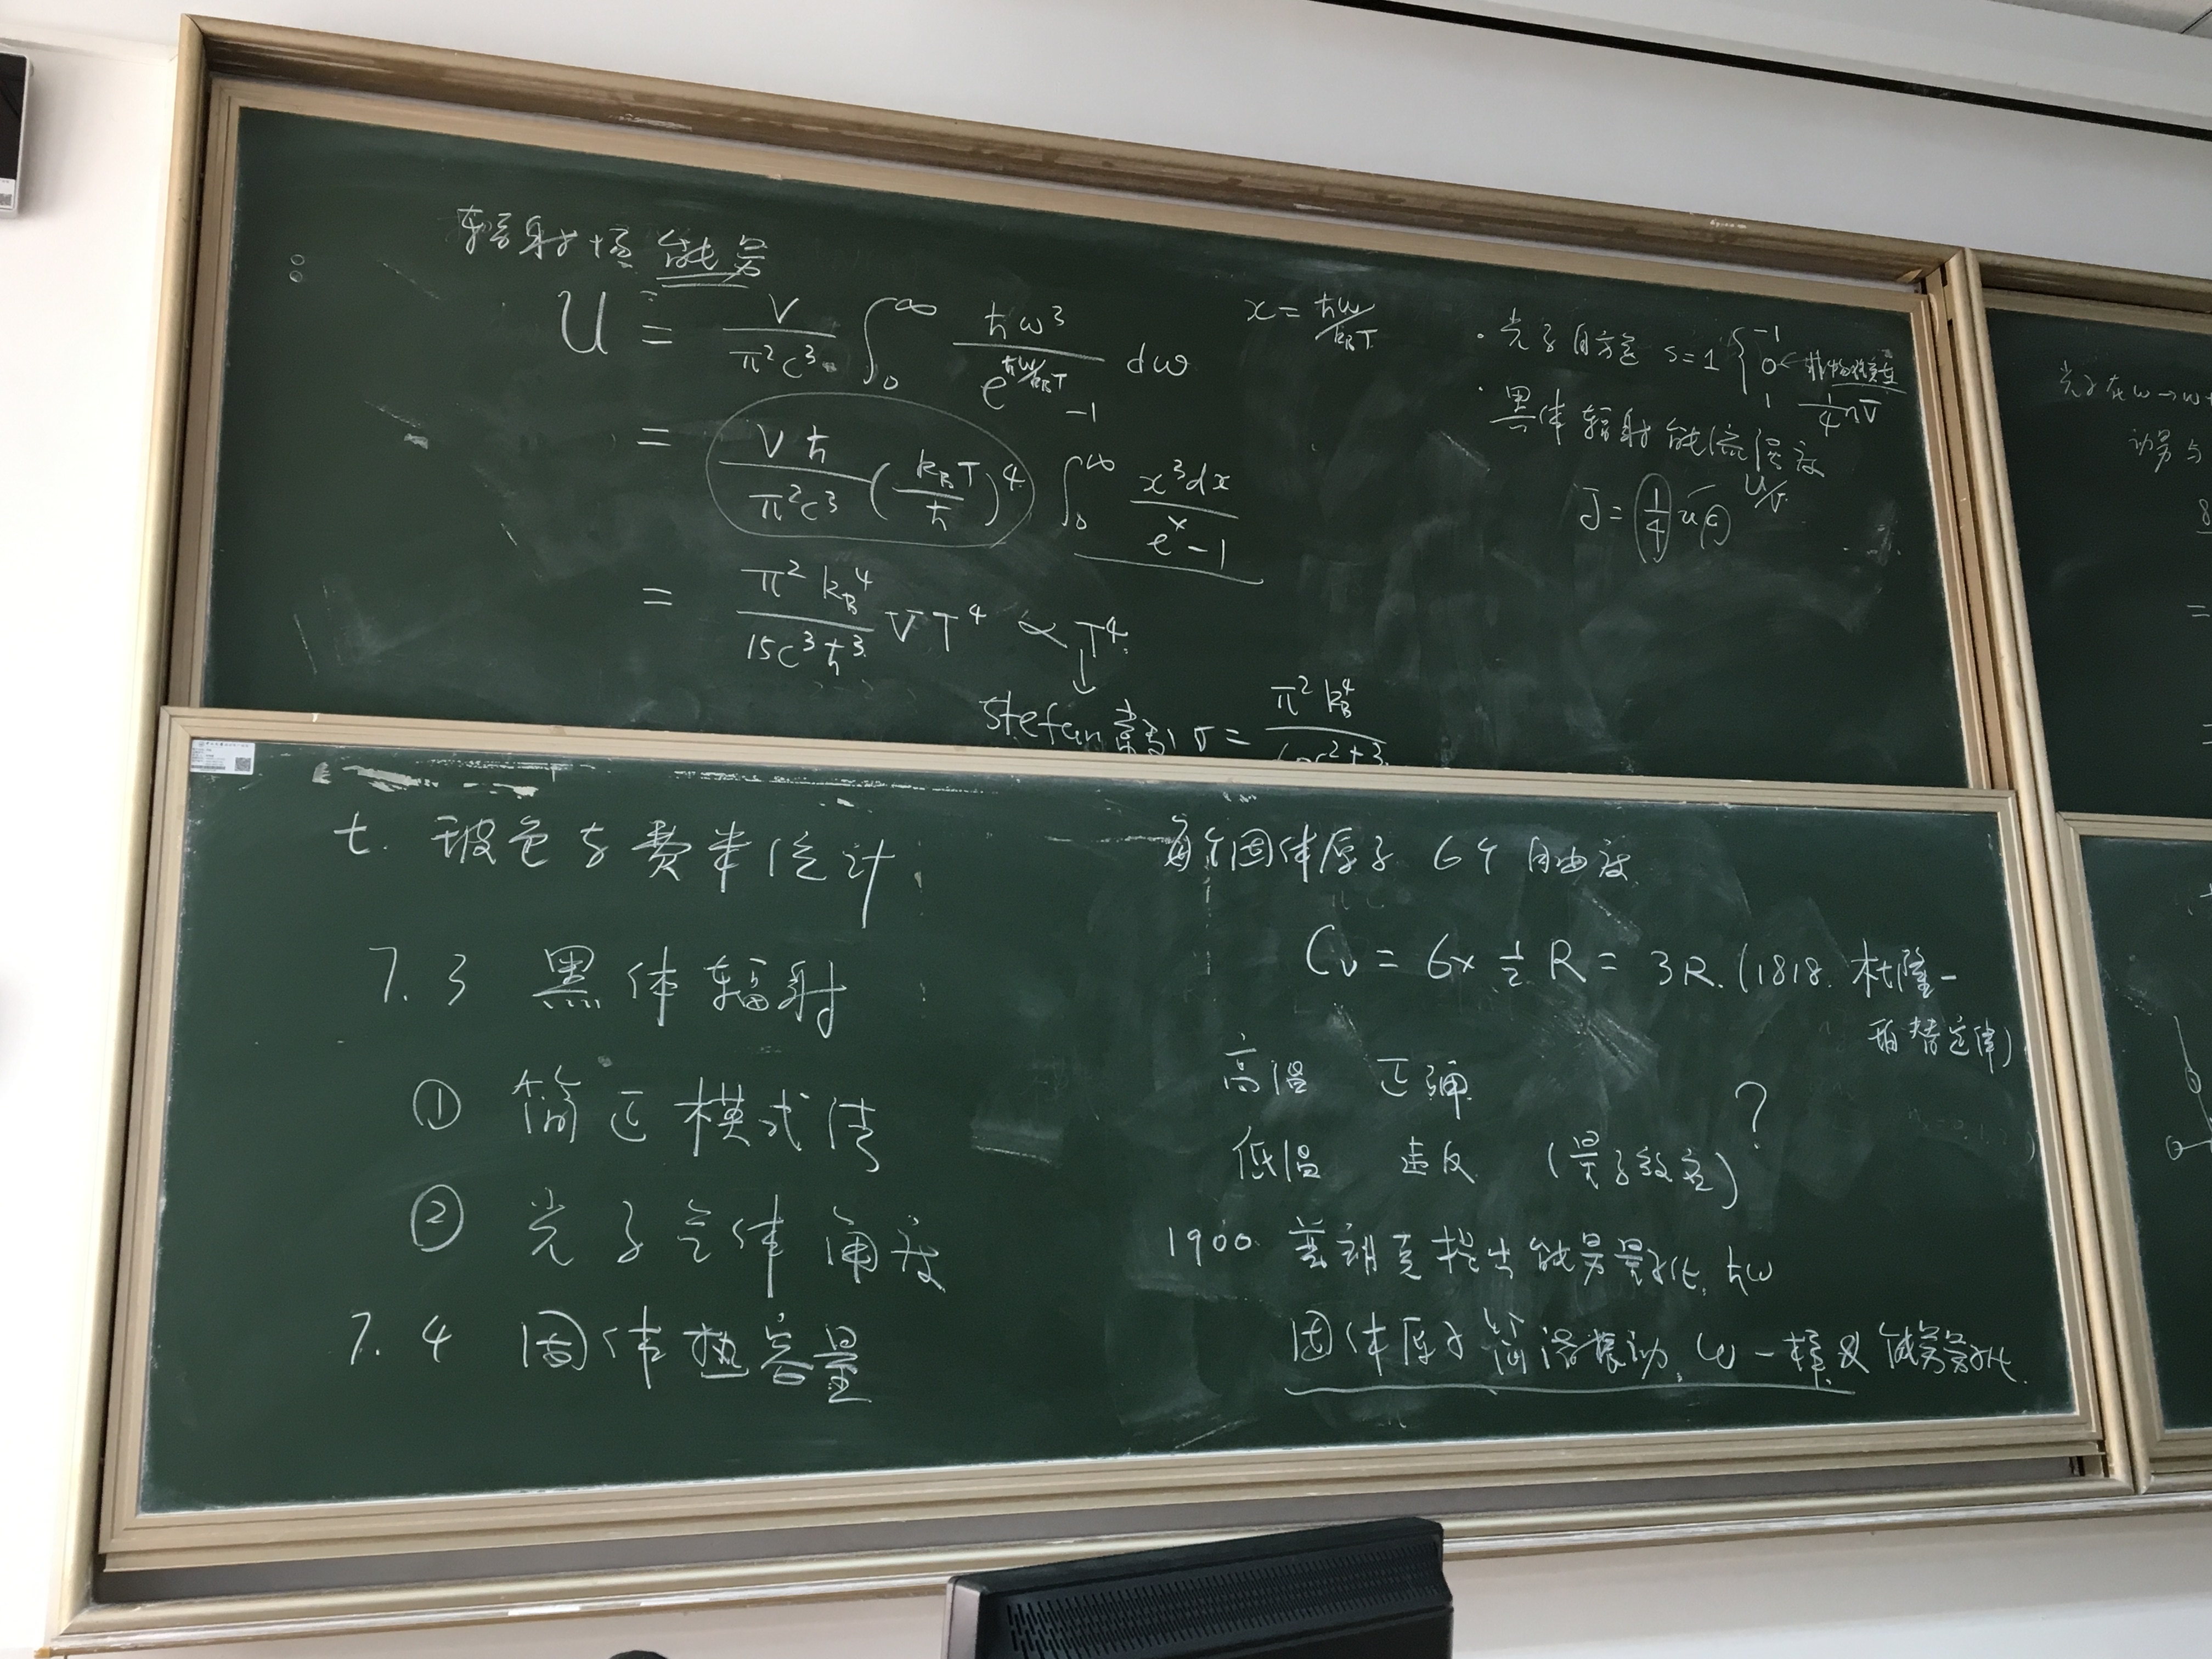 辐射场能量
U = V/π²c³ ∫₀^∞ ħω³/(e^{ħω/k_BT}-1) dω
x = ħω/k_BT
= Vħ/π²c³ (k_BT/ħ)⁴ ∫₀^∞ x³dx/(eˣ-1)
= π²k_B⁴/15c³ħ³ VT⁴ ∝ T⁴
Stefan常数 σ = π²k_B⁴/60c²ħ³
· 光子自旋 s=1 { -1 0 ← 非物理 1
1/4 nv̄
· 黑体辐射能流密度
J = 1/4 u c U/V
光子在ω→ω+
动量与
七. 玻色与费米统计
7.3 黑体辐射
① 简正模式法
② 光子气体角度
7.4 固体热容量
每个固体原子 6个自由度
Cv = 6×½R = 3R. (1818. 杜隆-
珀替定律)
高温 正确
低温 违反 (量子效应) ?
1900. 普朗克提出能量量子化, ħω
固体原子简谐振动, ω一样, 且能量量子化.